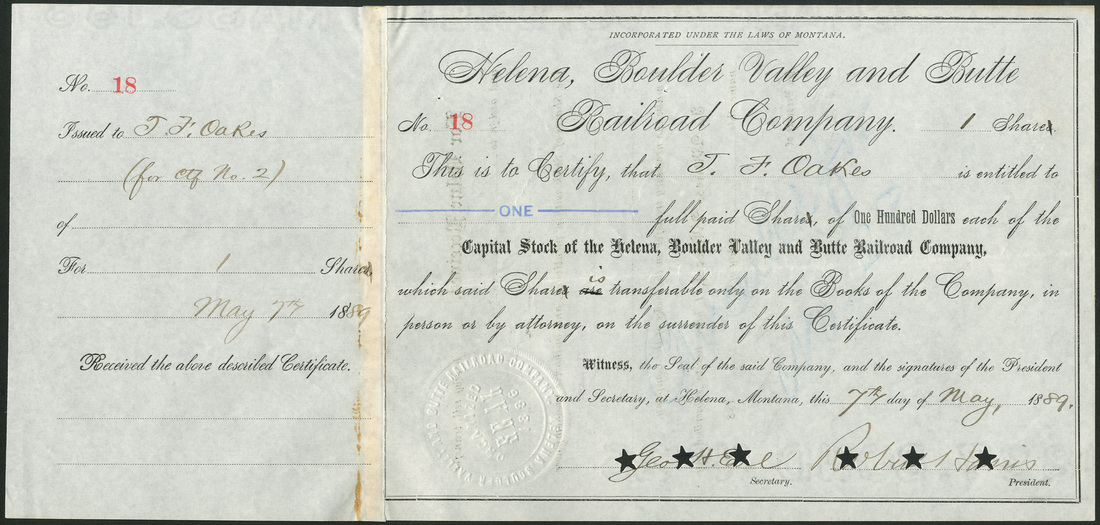 No. 18
Issued to T. F. Oakes
(for ctf No. 2)
of
For 1 Share
May 7th 1889
Received the above described Certificate.
INCORPORATED UNDER THE LAWS OF MONTANA.
Helena, Boulder Valley and Butte
No. 18 Railroad Company. 1 Share
This is to Certify, that T. F. Oakes is entitled to
ONE full paid Share, of One Hundred Dollars each of the
Capital Stock of the Helena, Boulder Valley and Butte Railroad Company,
is
which said Share are transferable only on the Books of the Company, in
person or by attorney, on the surrender of this Certificate.
Witness, the Seal of the said Company, and the signatures of the President
and Secretary, at Helena, Montana, this 7th day of May, 1889.
Geo. H. Earl Robert Harris
Secretary. President.